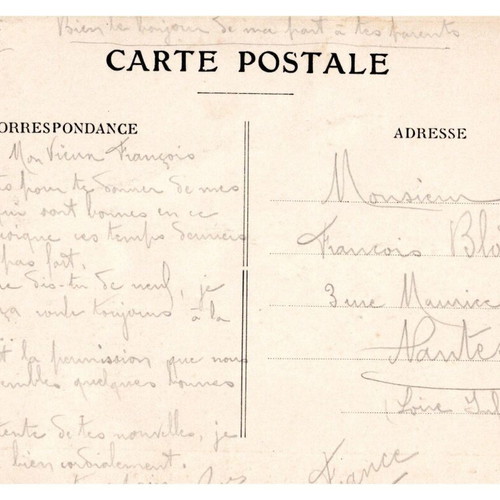 Bien le bonjour de ma part à tes parents
CARTE POSTALE
ORRESPONDANCE
Mon Vieux François
pour te donner de mes
qui sont bonnes en ce
ces temps derniers
pas fort.
dis-tu de neuf, je
toujours à la
la permission que nous
quelques bonnes
de tes nouvelles, je
bien cordialement.
ADRESSE
Monsieur
François
3 rue Maurice
Nantes
Loire
France